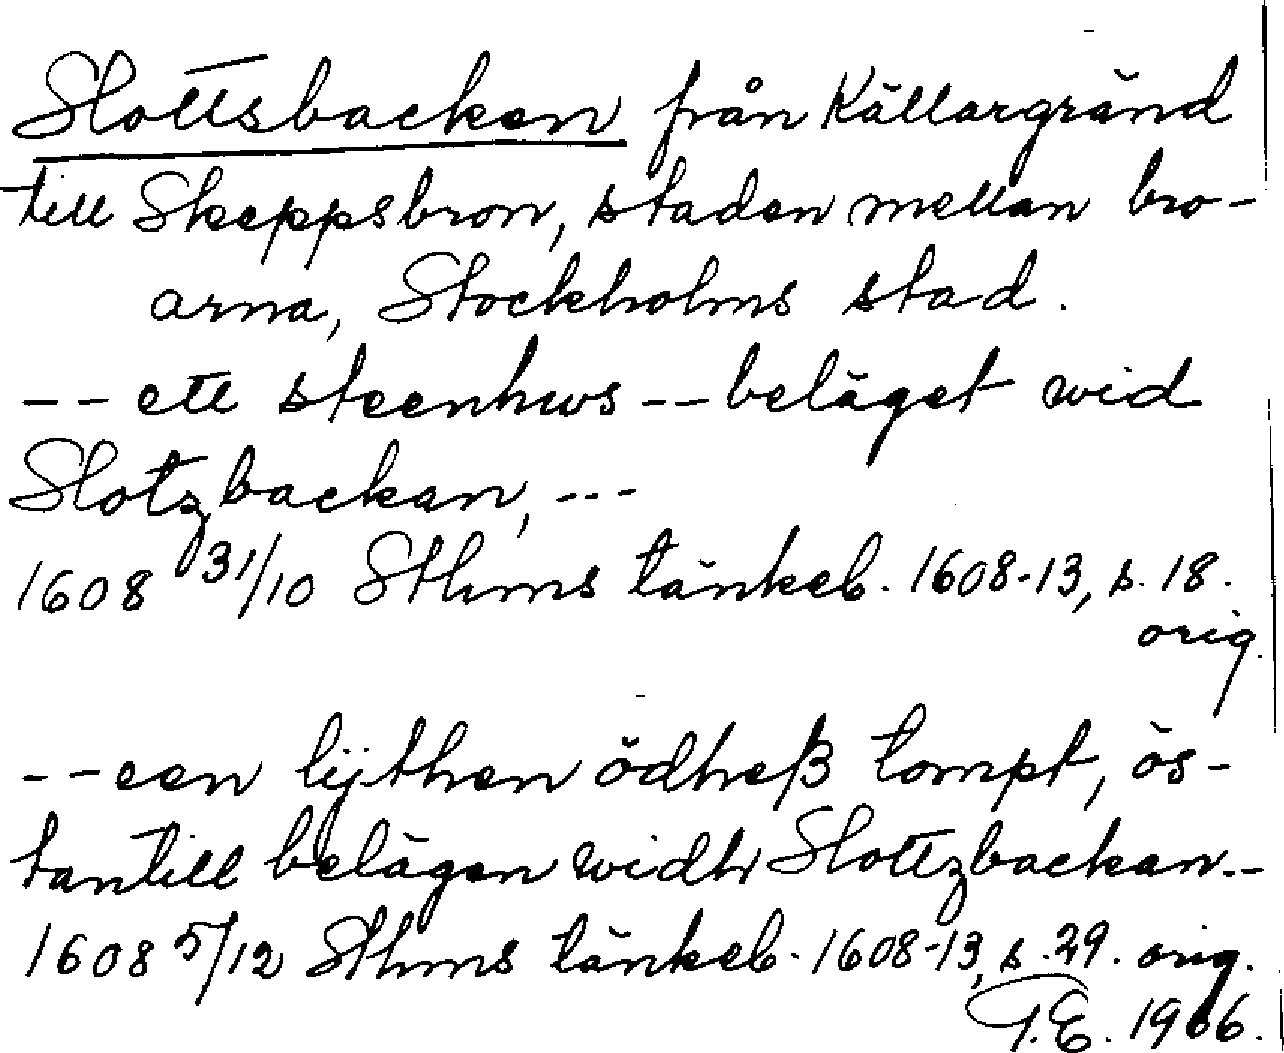 Slottsbacken från Källargränd
till Skeppsbron, staden mellan bro-
arna, Stockholms stad.
-- ett steenhws -- beläget wid
Slotzbackan, ---
1608 31/10 Sthms tänkeb. 1608-13, s. 18.
orig.
-- een lijthen ödheß tompt, ös-
tantill belägen widh Slottzbackan --
1608 5/12 Sthms tänkeb. 1608-13, s. 29. orig.
T.E. 1966.